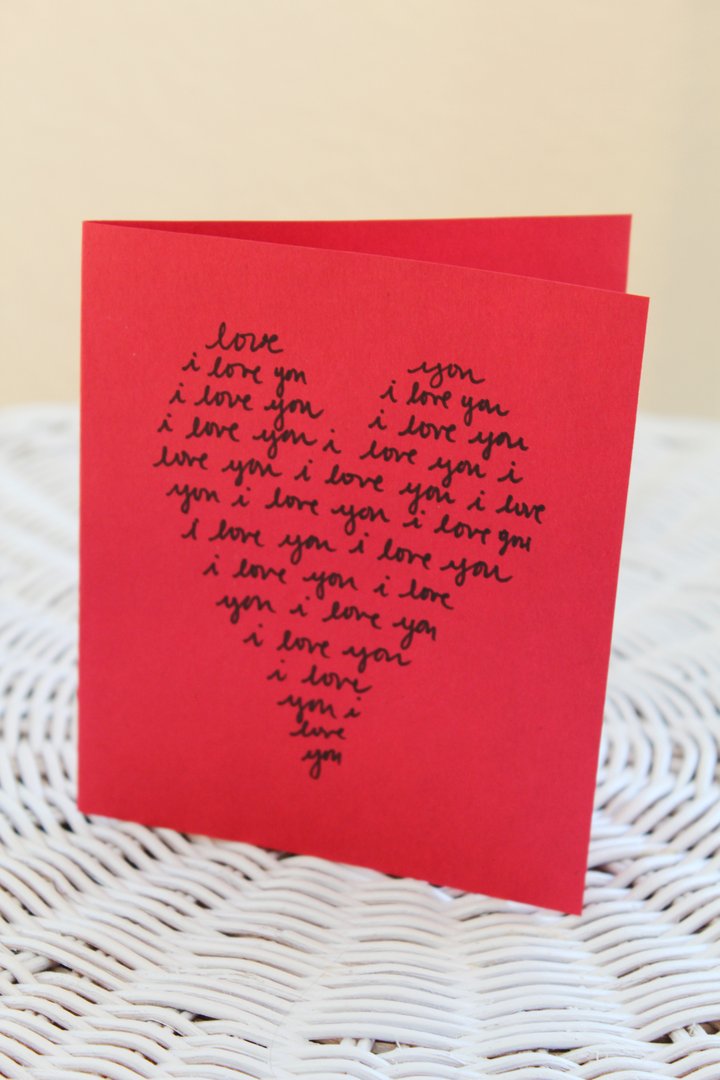 love
you
i love you
i love you
i love you
i love you
i love you i love you i
love you i love you i love
you i love you i love you
i love you i love you
i love you i love
you i love you
i love you
i love
you i
love
you